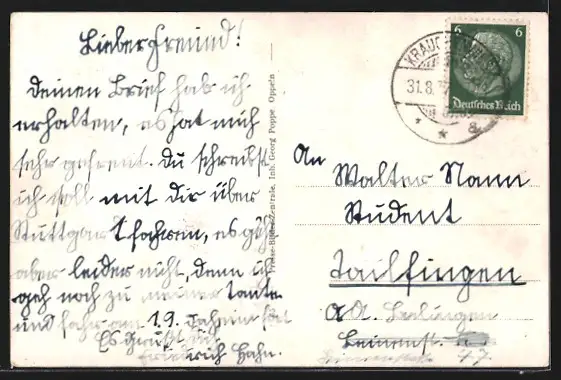 Lieber Freund!
Deinen Brief hab ich
erhalten, es hat mich
sehr gefreut. Du schreibst
ich soll mit dir über
Stuttgart fahren, es geht
aber leider nicht, denn ich
geh noch zu meiner Tante
und fahr am 1.9. dahin
Es grüßt dich
Friedrich Hahn.
Presse-Bilder-Zentrale, Inh. Georg Poppe, Oppeln
31.8.
6 6
Deutsches Reich
An
Walter Nann
Student
Tailfingen
OA. Balingen
47